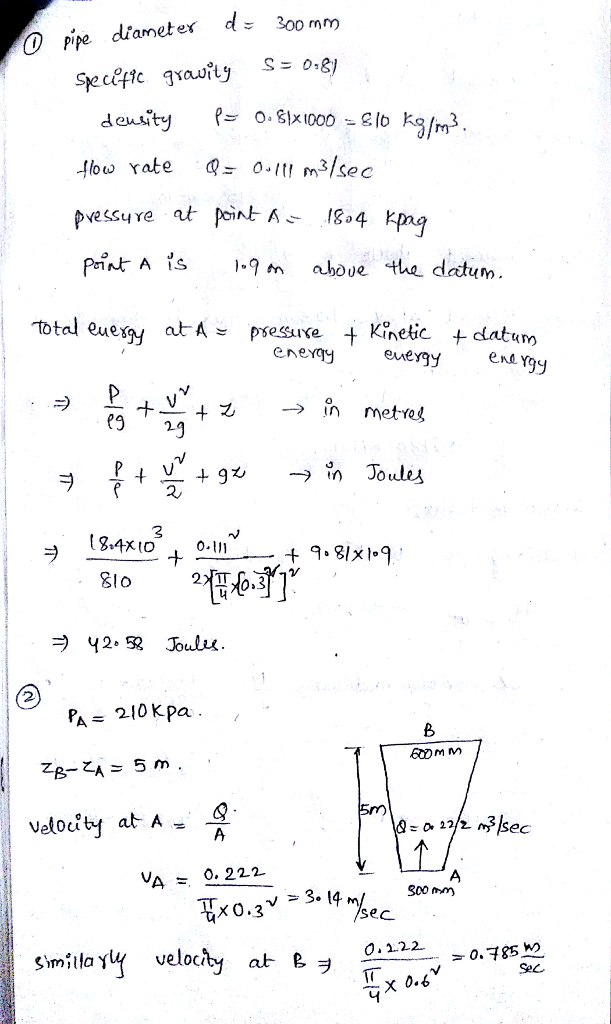 ① pipe diameter d = 300 mm
Specific gravity S = 0.81
density ρ = 0.81x1000 = 810 kg/m³.
flow rate Q = 0.111 m³/sec
pressure at point A = 18.4 kpag
point A is 1.9 m above the datum.
Total energy at A = pressure energy + Kinetic energy + datum energy
⇒ P/ρg + v²/2g + z → in metres
⇒ P/ρ + v²/2 + gz → in Joules
⇒ 18.4x10³/810 + 0.111²/2x[π/4 x(0.3)²]² + 9.81x1.9
⇒ 42.58 Joules.
② P_A = 210 Kpa.
Z_B - Z_A = 5 m.
velocity at A = Q/A
V_A = 0.222/(π/4 x 0.3²) = 3.14 m/sec
B
600mm
5m
Q = 0.222 m³/sec
↑
A
300 mm
simillarly velocity at B ⇒ 0.222/(π/4 x 0.6²) = 0.785 m/sec